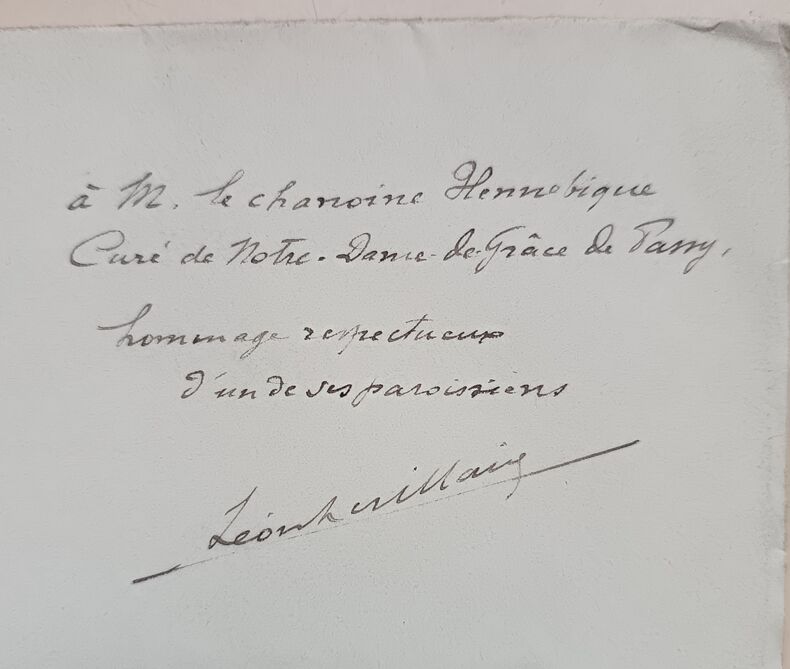 à M. le chanoine Hennebique
Curé de Notre-Dame-de-Grâce de Passy,
hommage respectueux
d'un de ses paroissiens
Léon